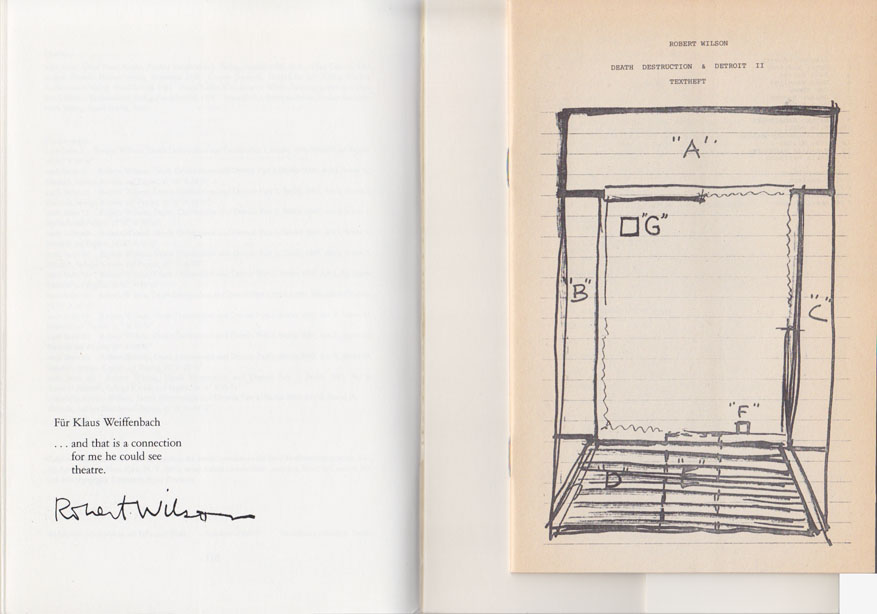 Für Klaus Weiffenbach
... and that is a connection
for me he could see
theatre.
Robert Wilson
ROBERT WILSON
DEATH DESTRUCTION & DETROIT II
TEXTHEFT
"A"
"G"
"B"
"C"
"F"
"D"